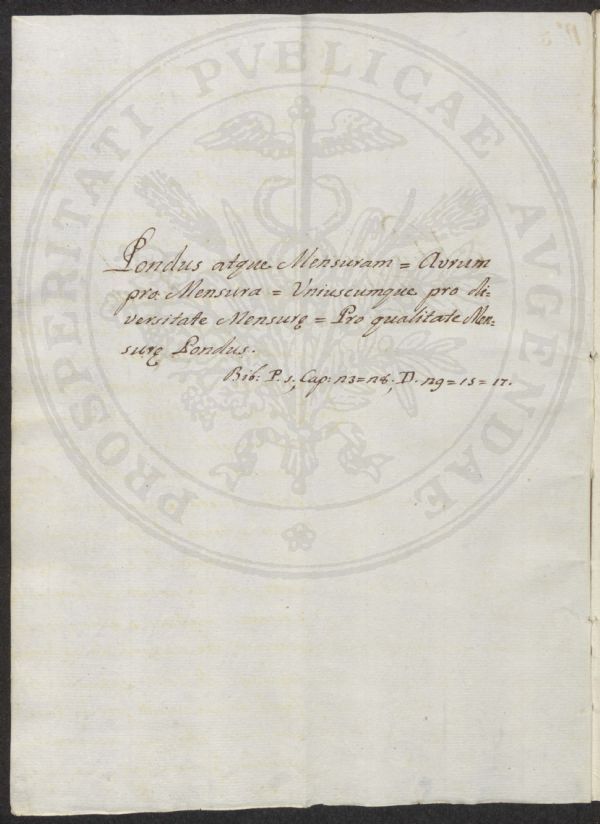 PROSPERITATI PVBLICAE AVGENDAE
Pondus atque Mensuram = Avrum
pro Mensura = Vniuscumque pro di=
versitate Mensurę = Pro qualitate Men=
surę Pondus.
Bib: P. 1, Cap: 23=28. D. 29=15=17.